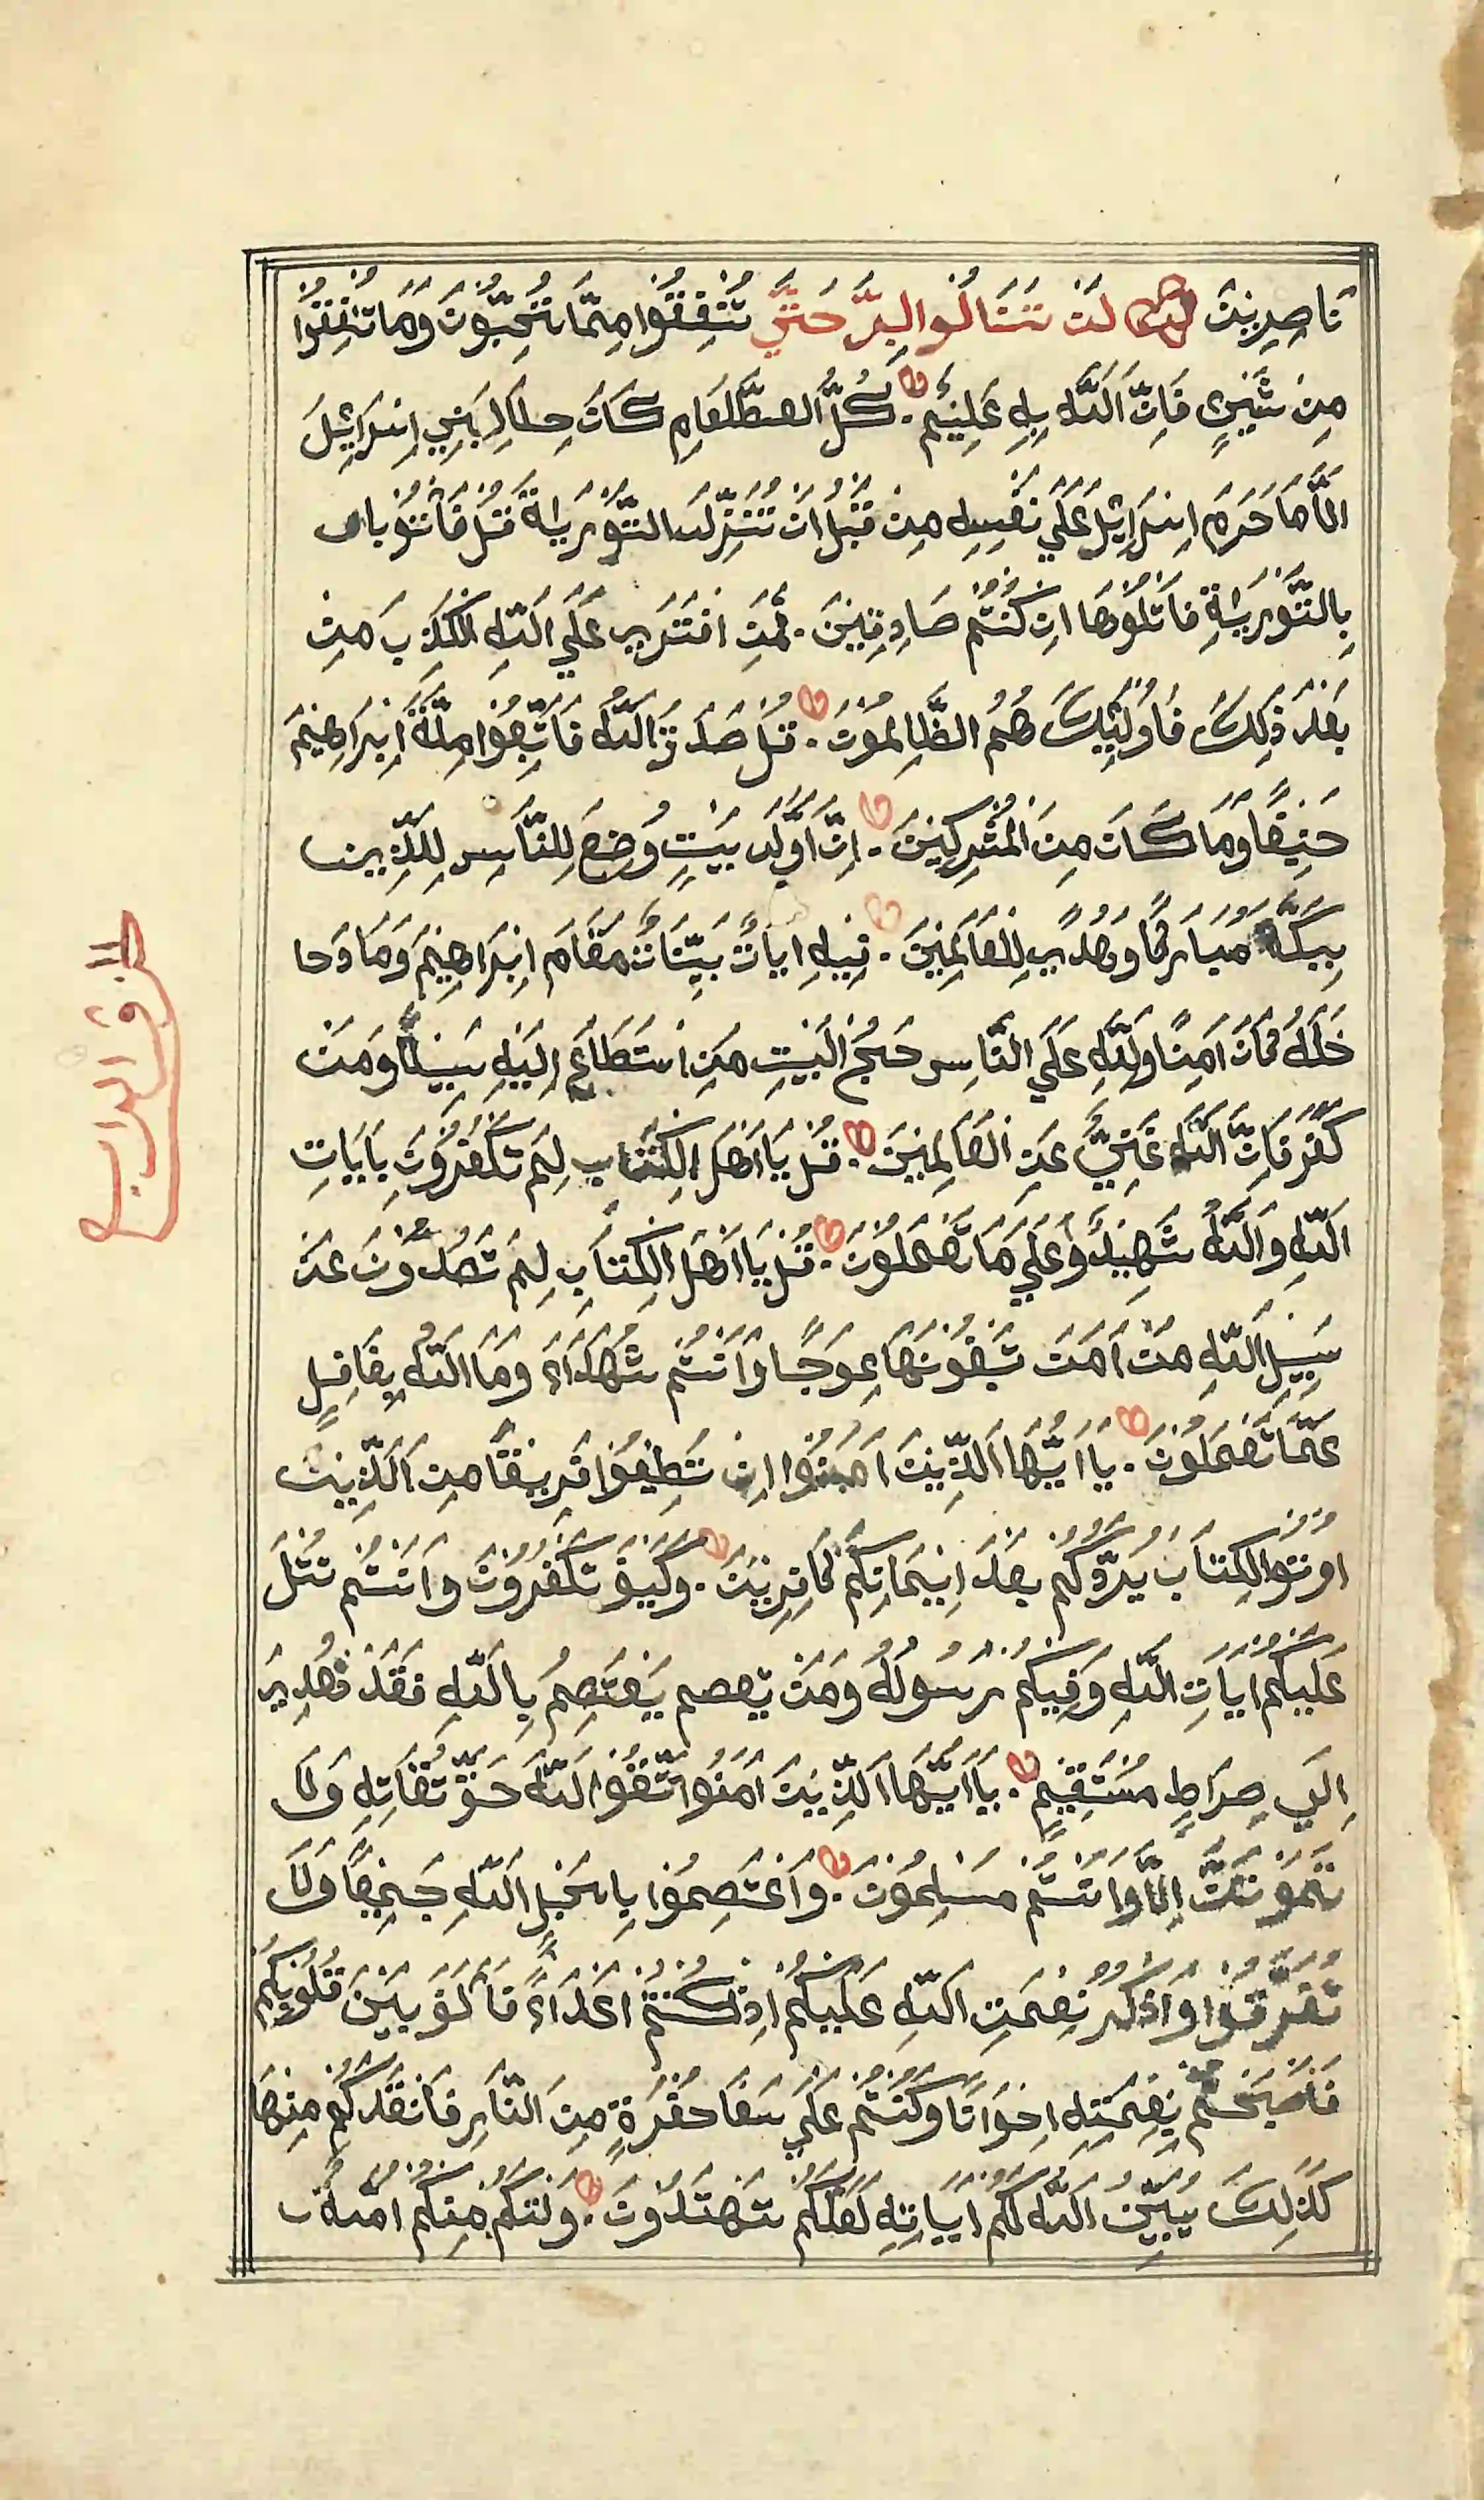 نَاصِرِينَ لَنْ تَنَالُوا الْبِرَّ حَتَّي تُنْفِقُوْا مِمَّا تُحِبُّوْنَ وَمَا تُنْفِقُوْا
مِنْ شَيْئٍ فَاِنَّ اللّٰهَ بِهِ عَلِيْمٌ . كُلُّ الطَّعَامِ كَانَ حِلاًّ لِبَنِيْ اِسْرَائِلَ
اِلاَّ مَا حَرَمَ اِسْرَائِلَ عَلَي نَفْسِهِ مِنْ قَبْلُ اَنْ تُنَزَّلَ التَّوْرَيةَ قُلْ فَأْتُوْ باى
بِالتَّوْرَيةِ فَاتْلُوْهَا اِنْ كُنْتُمْ صَادِقِيْنَ . فَمَنِ افْتَرَي عَلَي اللّٰهِ الْكَذِبَ مِنْ
بَعْدِ ذٰلِكَ فَاُولٰئِكَ هُمُ الظَّالِمُوْنَ . قُلْ صَدَقَ اللّٰهُ فَاتَّبِعُوْا مِلَّةَ اِبْرَاهِيْمَ
حَنِيْفًا وَمَا كَانَ مِنَ الْمُشْرِكِيْنَ . اِنَّ اَوَّلَ بَيْتٍ وُضِعَ لِلنَّاسِ لِلَّذِيْن
بِبَكَّةَ مُبَارَكًا وَهُدًي لِلْعَالَمِيْنَ . فِيْهِ اٰيَاتٌ بَيِّنَاتٌ مَقَامَ اِبْرَاهِيْمَ وَمَا دَحا
خَلَهُ كَانَ اٰمِنًا وَلِلّٰهِ عَلَي النَّاسِ حَجُّ الْبَيْتِ مَنِ اسْتَطَاعَ اِلَيْهِ سَبِيْلاً وَمَنْ
كَفَرَ فَاِنَّ اللّٰهَ غَنِيٌّ عَنِ الْعَالَمِيْنَ . قُلْ يَا اَهْلَ الْكِتَابِ لِمَ تَكْفُرُوْنَ بِاٰيَاتِ
اللّٰهِ وَاللّٰهُ شَهِيْدٌ عَلَي مَا تَعْمَلُوْنَ . قُلْ يَا اَهْلَ الْكِتَابِ لِمَ تَصُدُّوْنَ عَنْ
سَبِيْلِ اللّٰهِ مَنْ اٰمَنَ تَبْغُوْنَهَا عِوَجًا وَاَنْتُمْ شُهَدَاءَ وَمَا اللّٰهُ بِغَافِلٍ
عَمَّا تَعْمَلُوْنَ . يَا اَيُّهَا الَّذِيْنَ اٰمَنُوْا اِنْ تَطِيْعُوْا فَرِيْقًا مِنَ الَّذِيْنَ
اُوْتُوا الْكِتَابَ يَرُدُّوْكُمْ بَعْدَ اِيْمَانِكُمْ كَافِرِيْنَ . وَكَيْفَ تَكْفُرُوْنَ وَاَنْتُمْ تُتْلَ
عَلَيْكُمْ اٰيَاتِ اللّٰهِ وَفِيْكُمْ رَسُوْلَهُ وَمَنْ يعصم يَعْتَصِمُ بِاللّٰهِ فَقَدْ هُدِيَ
اِلَي صِرَاطٍ مُسْتَقِيْمٍ . يَا اَيُّهَا الَّذِيْنَ اٰمَنُوا اتَّقُوْا اللّٰهَ حَقَّ تُقَاتِهِ وَلاَ
تَمُوْتُنَّ اِلاَّ وَاَنْتُمْ مُسْلِمُوْنَ . وَاعْتَصِمُوْا بِا بحَبْلِ اللّٰهِ جَمِيْعًا وَلاَ
تَفَرَّقُوْا وَاذْكُر نِعْمَتِ اللّٰهِ عَلَيْكُمْ اِذْ كُنْتُمْ اَعْدَاءً فَاَلَفَ بَيْنَ قُلُوْبِكُمْ
فَاَصْبَحْتُمْ بِنِعْمَتِهِ اِخْوَانًا وَكُنْتُمْ عَلَي شَفَا حُفْرَةٍ مِنَ النَّارِ فَانْقَذَكُمْ مِنْهَا
كَذٰلِكَ يُبَيِّنُ اللّٰهُ لَكُمْ اٰيَاتِهِ لَعَلَّكُمْ تَهْتَدُوْنَ . وَلْتَكُمْ مِنْكُمْ اُمَّةٌ
الجزؤ الرابع